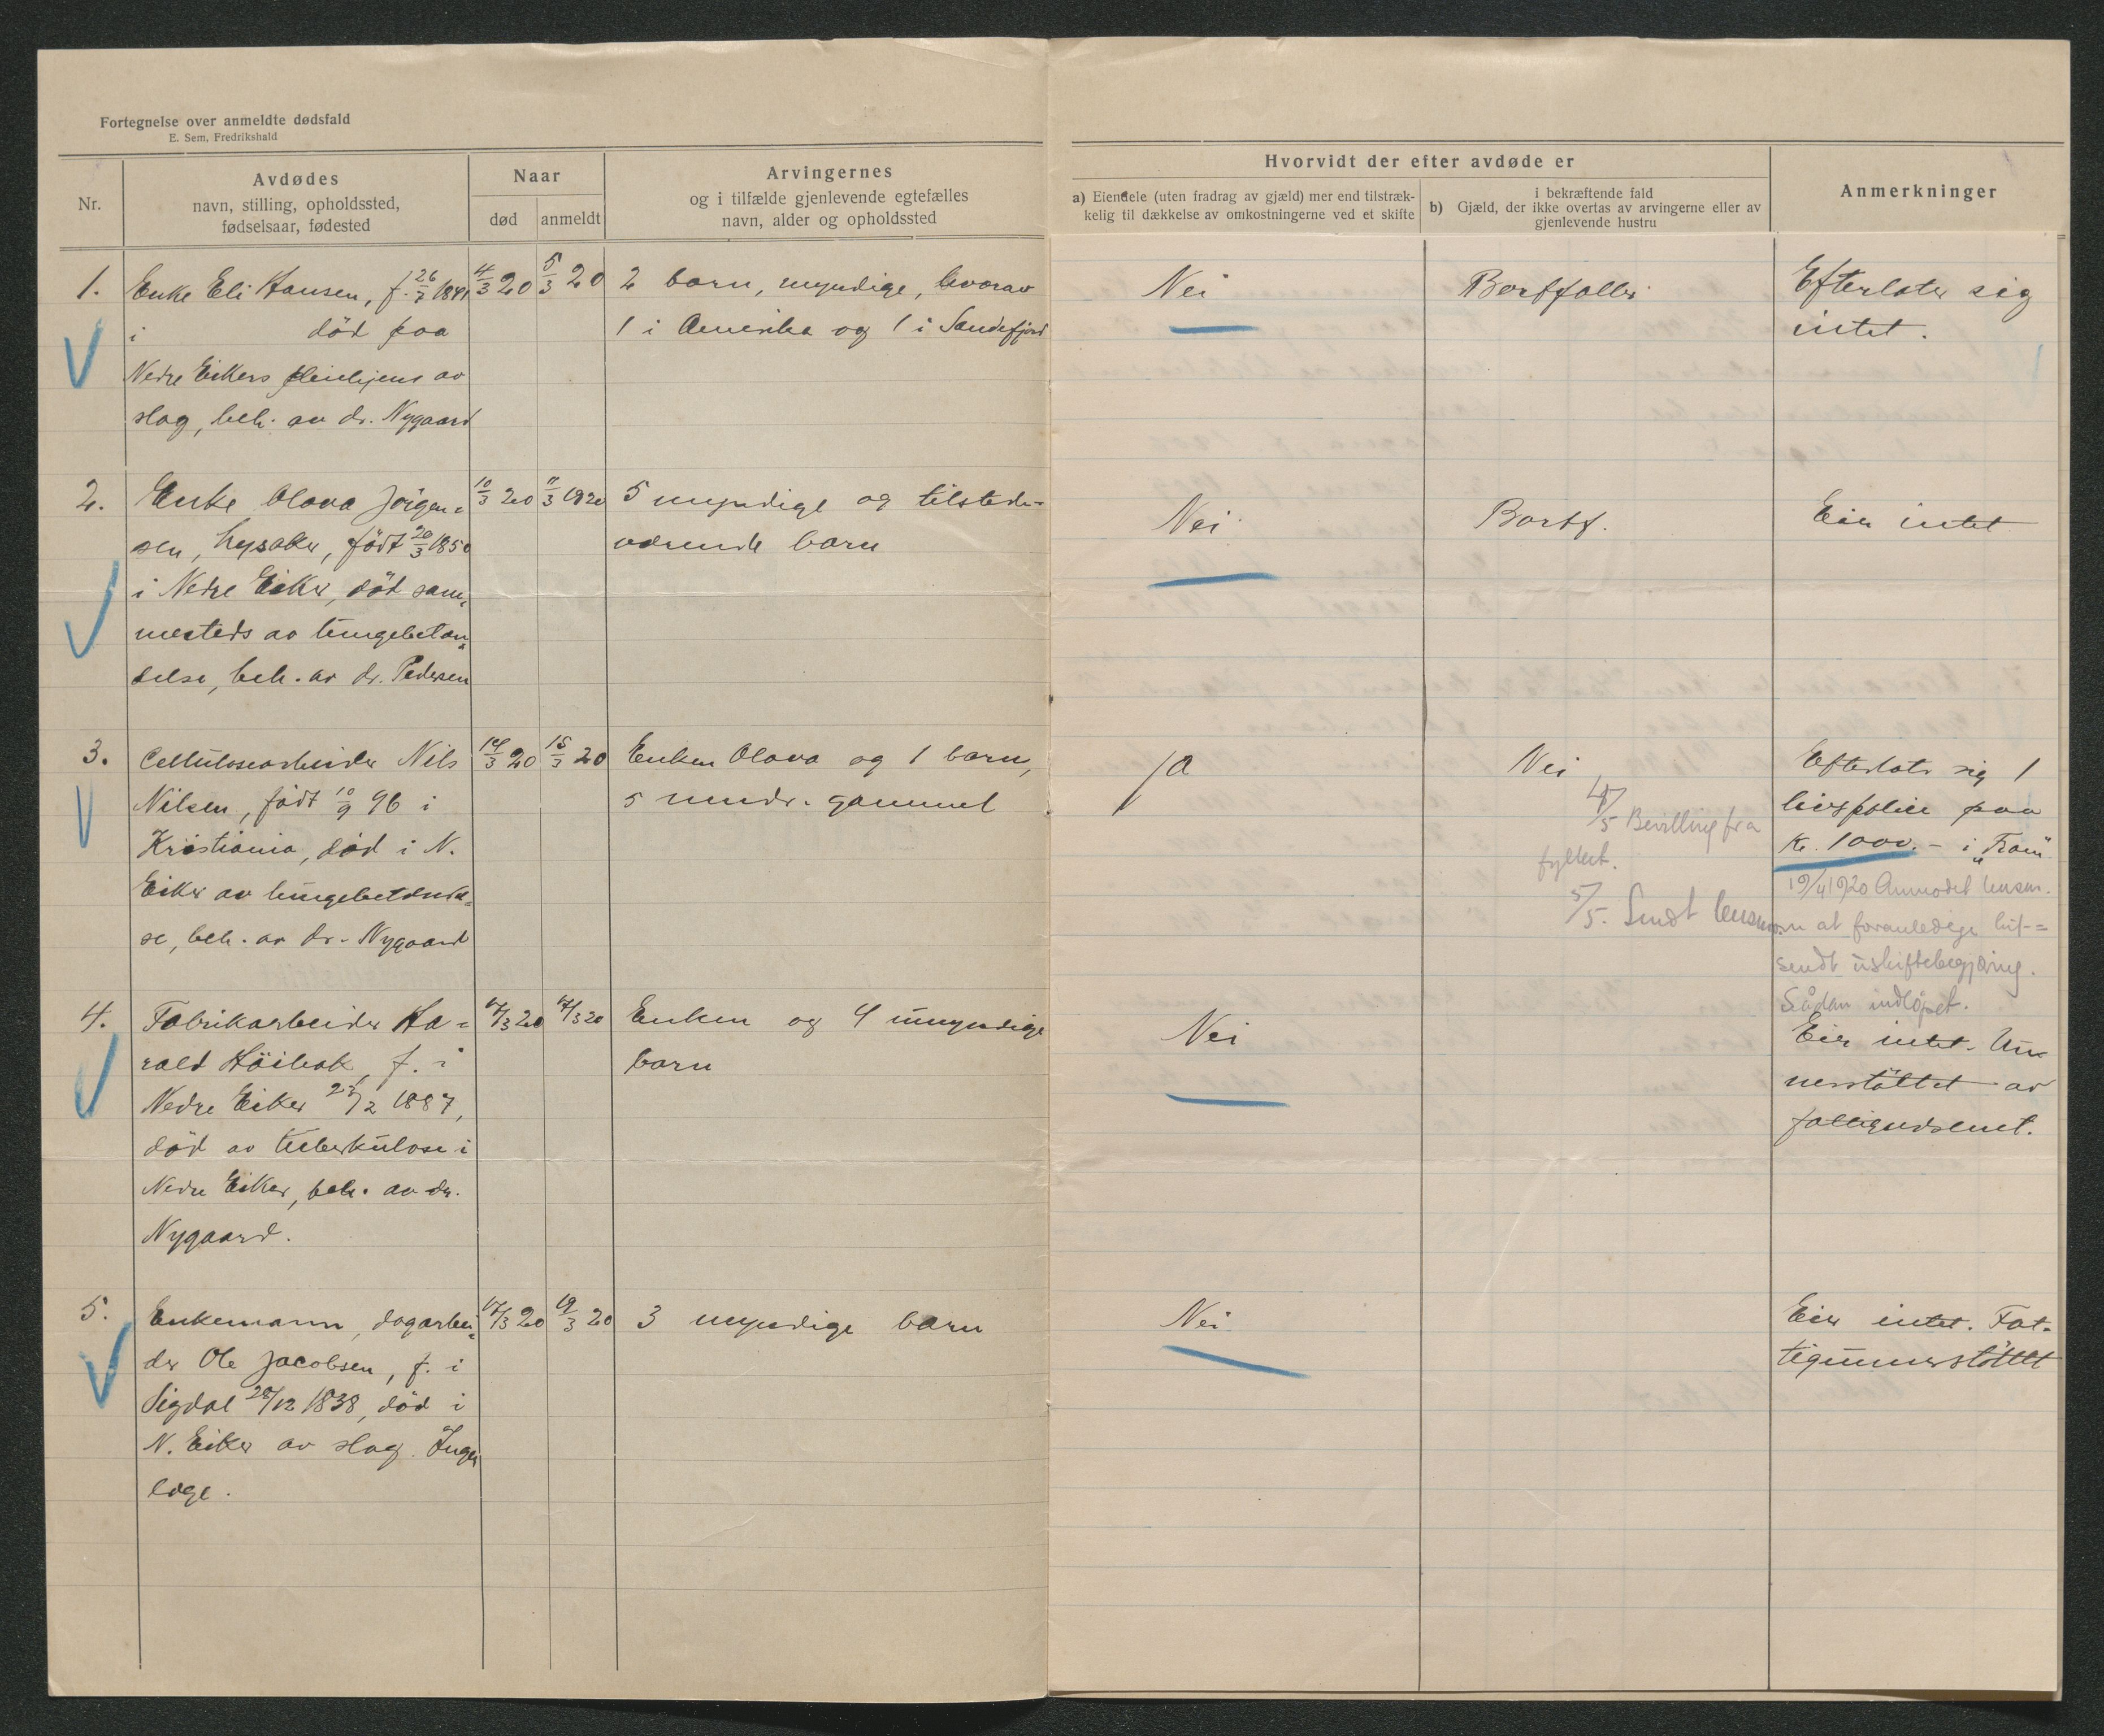 Fortegnelse over anmeldte dødsfald
E. Sem, Fredrikshald
Nr.
Avdødes
navn, stilling, opholdssted,
fødselsaar, fødested
Naar
død
anmeldt
Arvingernes
og i tilfælde gjenlevende egtefælles
navn, alder og opholdssted
Hvorvidt der efter avdøde er
a) Eiendele (uten fradrag av gjæld) mer end tilstræk-
kelig til dækkelse av omkostningerne ved et skifte
i bekræftende fald
b) Gjæld, der ikke overtas av arvingerne eller av
gjenlevende hustru
Anmerkninger
1.
Enke Eli Hansen, f. 26/7 1841
i død paa
Nedre Eikers pleiehjem av
slag, beh. av dr. Nygaard
4/3 20
5/3 20
2 barn, myndige, hvorav
1 i Amerika og 1 i Sandefjord
Nei
Bortfaller
Efterlater sig
intet.
2.
Enke Olava Jörgen=
sen, Lysaker, född 20/3 1850
i Nedre Eiker, död sam„
mesteds av lungebetæn„
delse, beh. av dr. Pedersen
10/3 20
11/3 1920
5 myndige og tilstede-
værende barn
Nei
Bortf.
Eier intet
3.
Cellulosearbeider Nils
Nilsen, född 10/9 96 i
Kristiania, død i N.
Eiker av lungebetændel=
se, beh. av dr. Nygaard
14/3 20
15/3 20
Enken Olava og 1 barn,
5 mndr. gammel
ja
Nei
4/5 Bevilling fra
fylket.
5/5. Sendt lensm.
Efterlater sig 1
livspolice paa
Kr. 1000.- i „Fram"
19/4 1920 Anmodet lensm.
om at foranledige hit-=
sendt uskiftebegjæring.
Sådan indløpet.
4.
Fabrikarbeider Ha=
rald Höibak, f. i
Nedre Eiker /2 1887,
död av tuberkulose i
Nedre Eiker, beh. av dr.
Nygaard.
17/3 20
17/3 20
Enken og 4 umyndige
barn
Nei
Eier intet. Un
nerstöttet av
fattigvæsenet.
5.
Enkemann, dagarbei„
der Ole Jacobsen, f. i
Sigdal 28/12 1838, död i
N. Eiker av slag. Ingen
læge.
17/3 20
19/3 20
3 myndige barn
Nei
Eier intet. Fat-
tigunnerstöttet